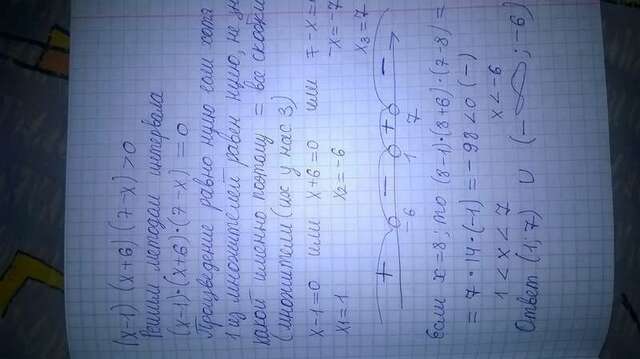 (x-1) (x+6) (7-x) >0
Решим методом интервала
(x-1)·(x+6)·(7-x) =0
Произведение равно нулю если хотя
1 из множителей равен нулю, не
какой именно поэтому = все скобки
(множители (их у нас 3)
x-1=0 или x+6=0 или 7-x=
x1=1 x2=-6 -x=-7
x3=7
+ - + -
-6 1 7
Если x=8; то (8-1)·(8+6)·(7-8)=
= 7·14·(-1) = -98<0 (-)
1<x<7 x<-6
Ответ (1;7) ∪ (-∞;-6)